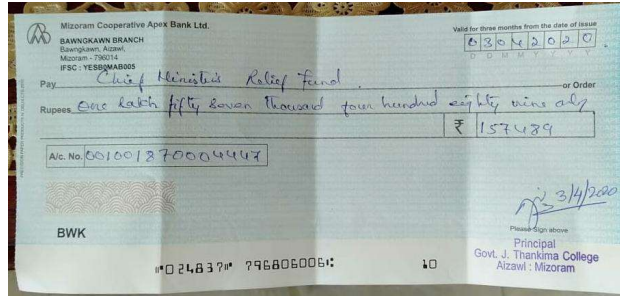 Mizoram Cooperative Apex Bank Ltd.
BAWNGKAWN BRANCH
Bawngkawn, Aizawl,
Mizoram - 796014
IFSC : YESB0MAB005
Valid for three months from the date of issue
03042020
D D M M Y Y Y Y
Pay Chief Minister's Relief Fund
or Order
Rupees One lakh fifty seven thousand four hundred eighty nine only
₹ 157489
A/c. No. 001001870004447
3/4/2020
BWK
Please Sign above
Principal
Govt. J. Thankima College
Aizawl : Mizoram
⑈024837⑈ 796806006⑆ 10